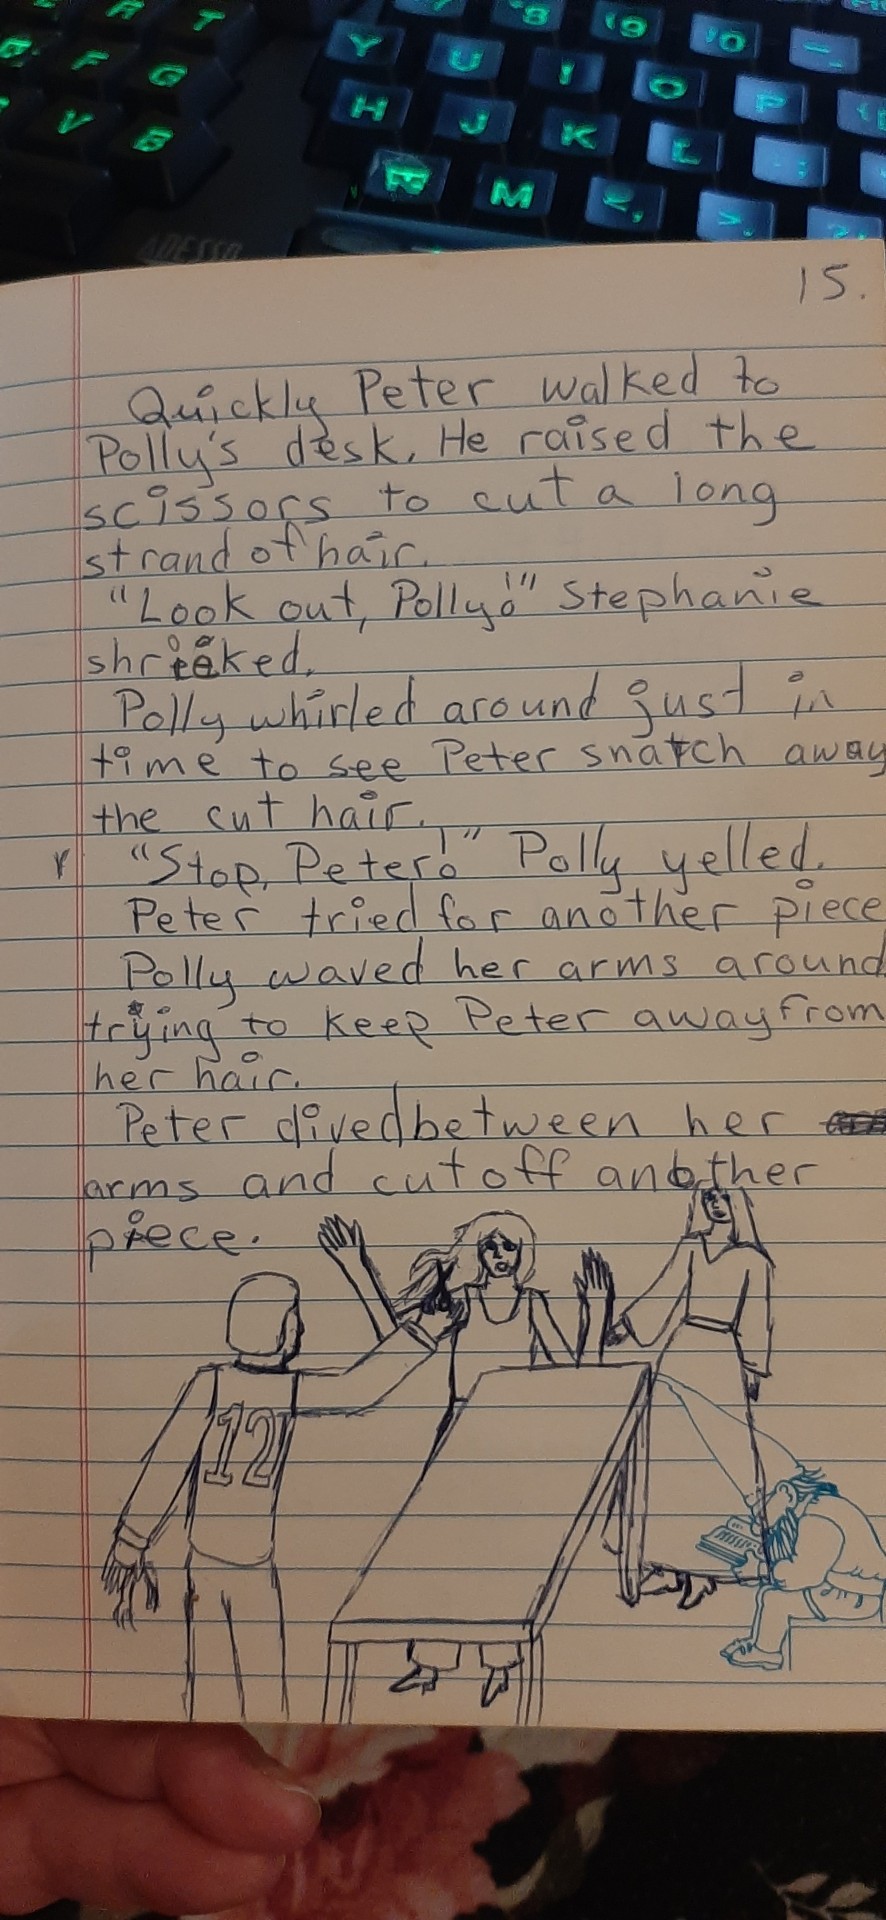 T
8
9
10
-
F
G
Y
U
I
O
P
V
B
H
J
K
L
;
M
<,
>.
ADESSO
15.
Quickly Peter walked to
Polly's desk. He raised the
scissors to cut a long
strand of hair.
"Look out, Polly!" Stephanie
shrieked.
Polly whirled around just in
time to see Peter snatch away
the cut hair.
"Stop, Peter!" Polly yelled.
Peter tried for another piece
Polly waved her arms around
trying to keep Peter away from
her hair.
Peter dived between her
arms and cut off another
piece.
12